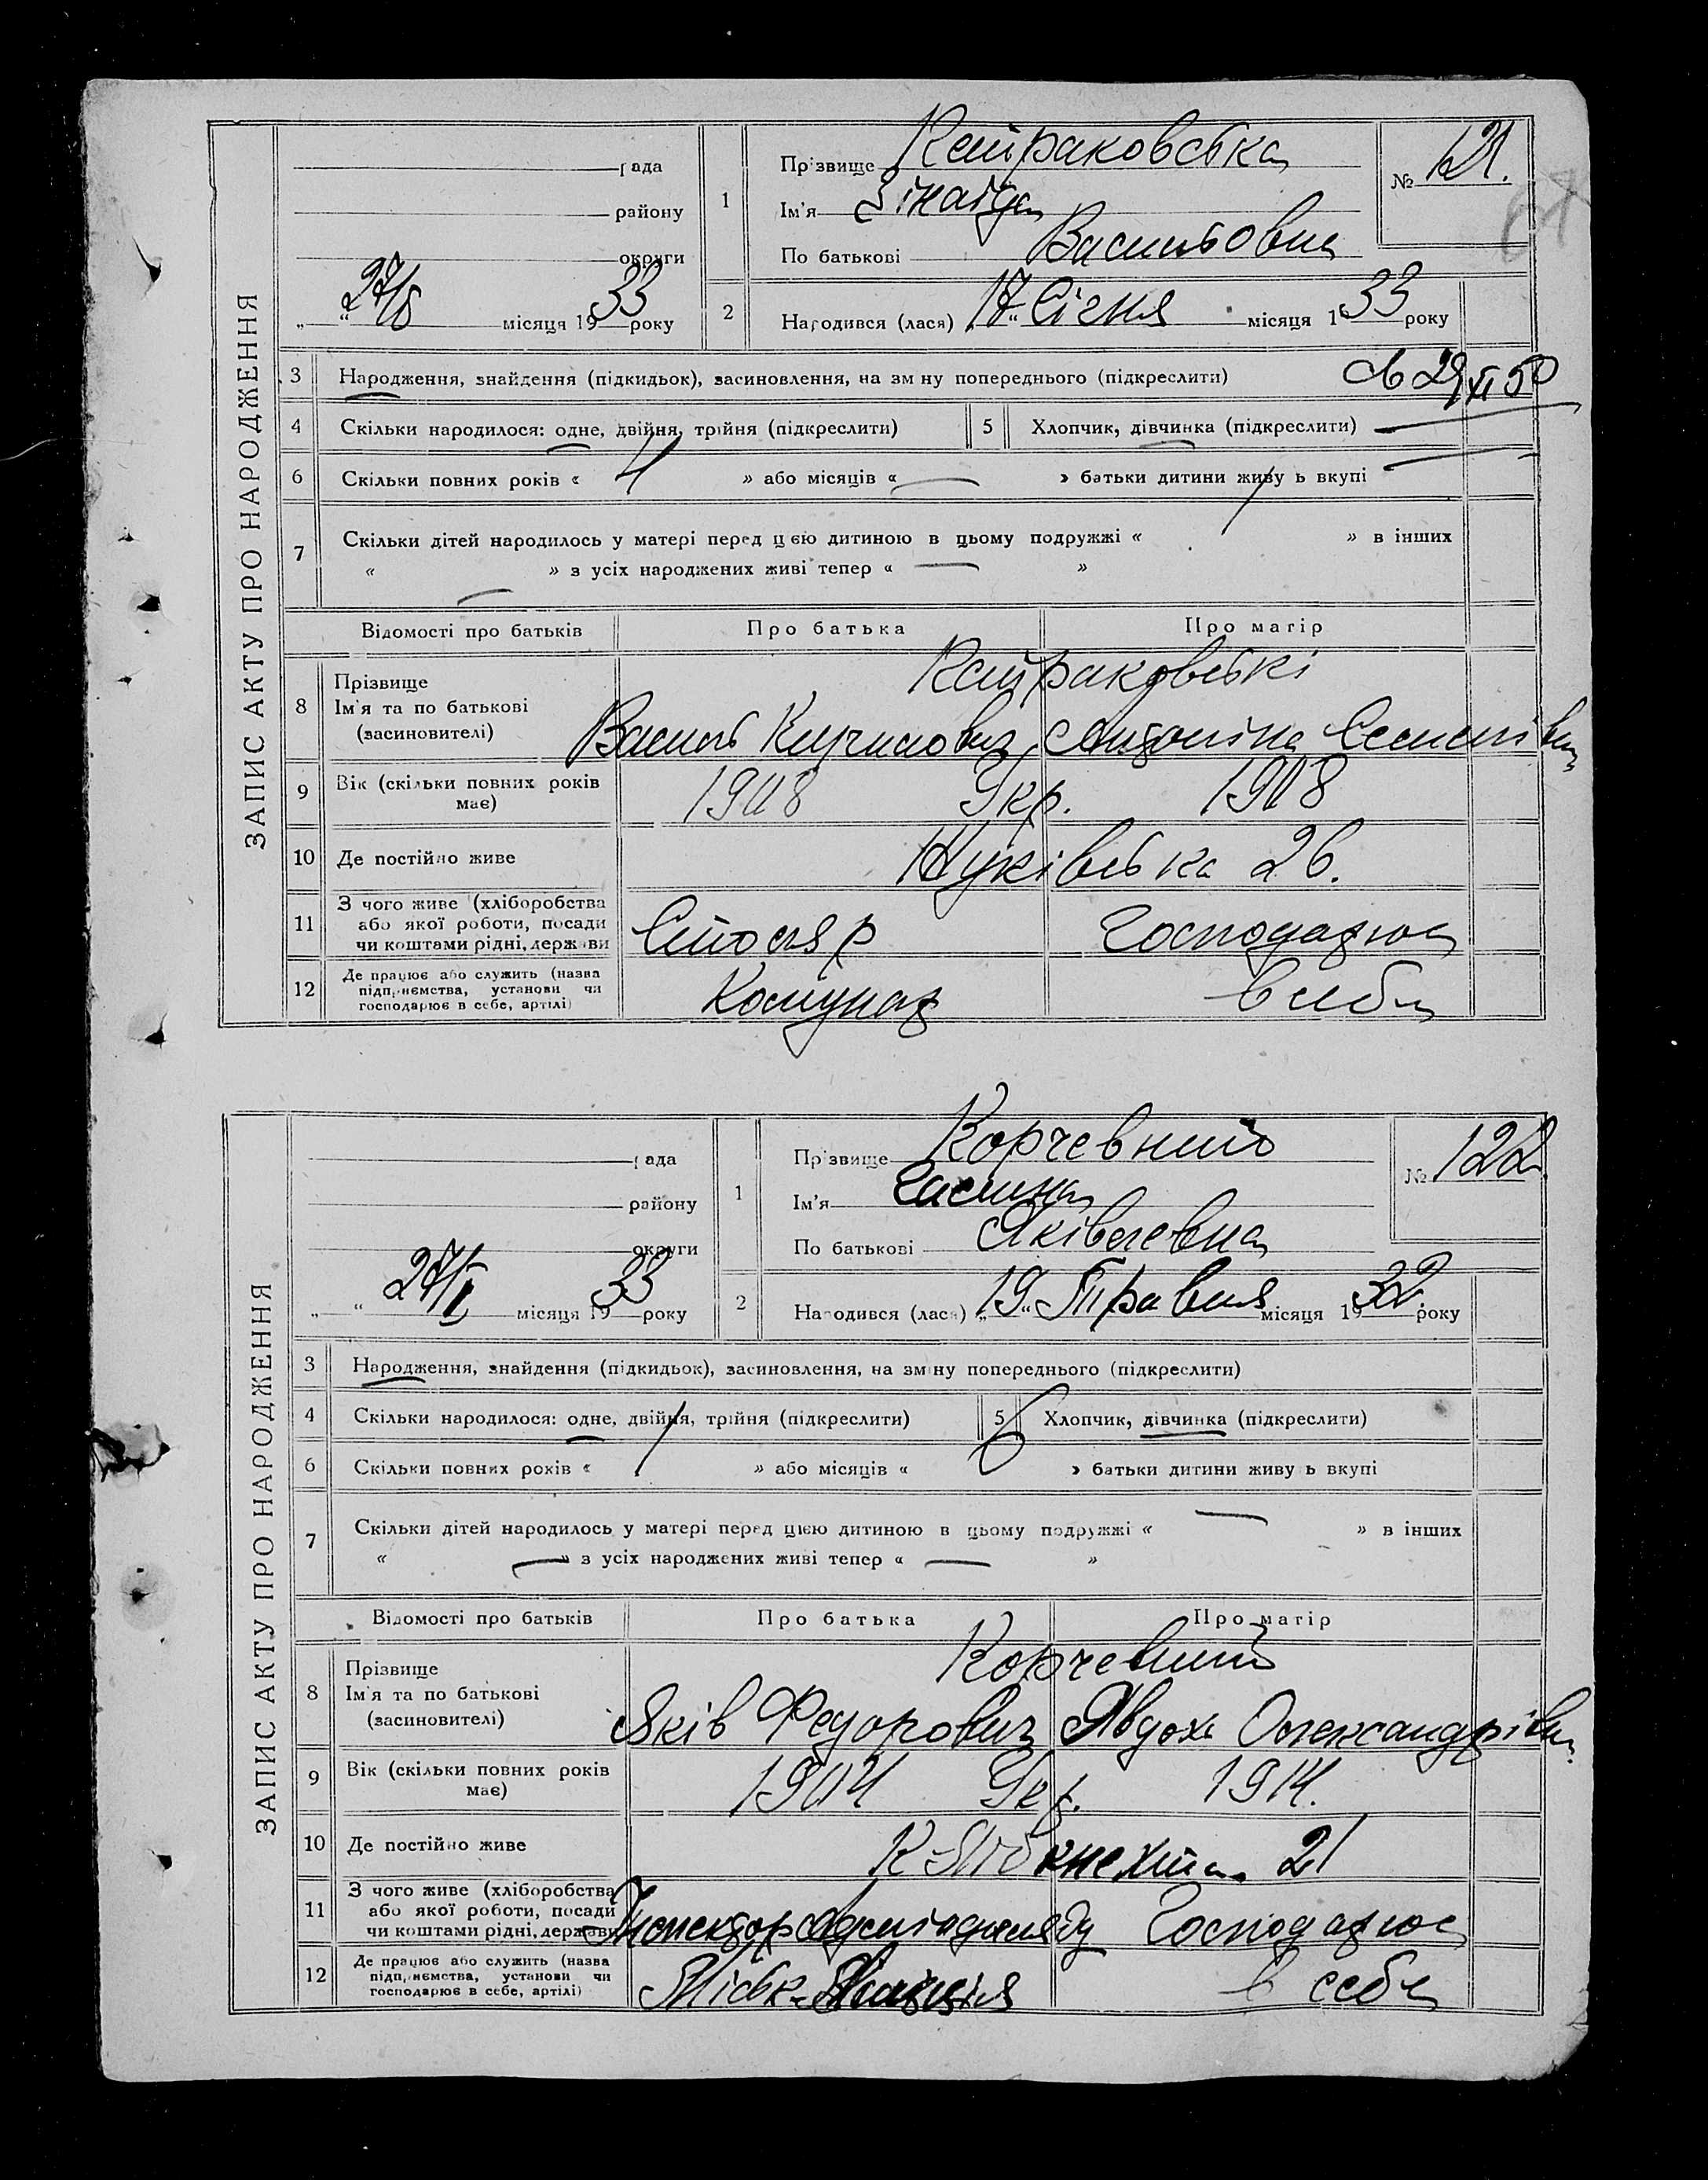 ЗАПИС АКТУ ПРО НАРОДЖЕННЯ
рада
району
округи
27/I місяця 1933 року
1 Прізвище
Ім'я Зінаїда
По батькові Васильовна
№ 121.
2 Народився (лася) „17" Січня місяця 1933 року
3 Народження, знайдення (підкидьок), засиновлення, на зміну попереднього (підкреслити)
29 XI 50
4 Скільки народилося: одне, двійня, трійня (підкреслити) 5 Хлопчик, дівчинка (підкреслити)
6 Скільки повних років « 4 » або місяців « — » батьки дитини живуть вкупі
7 Скільки дітей народилось у матері перед цією дитиною в цьому подружжі « / » в інших
« — » з усіх народжених живі тепер « — »
Відомості про батьків Про батька Про матір
8 Прізвище
Ім'я та по батькові
(засиновителі)
Василь Антоніна
9 Вік (скільки повних років має) 1908 Укр. 1908
10 Де постійно живе 26.
11 З чого живе (хліборобства або якої роботи, посади чи коштами рідні, держави Столяр Господарює
12 Де працює або служить (назва підприємства, установи чи господарює в себе, артілі) Комунар в себе
ЗАПИС АКТУ ПРО НАРОДЖЕННЯ
рада
району
округи
27/I місяця 1933 року
1 Прізвище Корчевний
Ім'я Галина
По батькові Яківлевна
№ 122.
2 Народився (лася) „19" Травня місяця 1932 року
3 Народження, знайдення (підкидьок), засиновлення, на зміну попереднього (підкреслити)
4 Скільки народилося: одне, двійня, трійня (підкреслити) 5 Хлопчик, дівчинка (підкреслити)
6 Скільки повних років « 1 » або місяців « 6 » батьки дитини живуть вкупі
7 Скільки дітей народилось у матері перед цією дитиною в цьому подружжі « — » в інших
« — » з усіх народжених живі тепер « — »
Відомості про батьків Про батька Про матір
8 Прізвище
Ім'я та по батькові
(засиновителі)
Корчевний
Яків Федорович Явдоха Олександрівна
9 Вік (скільки повних років має) 1904 Укр. 1914.
10 Де постійно живе К-Лібкнехта 21
11 З чого живе (хліборобства або якої роботи, посади чи коштами рідні, держави Інспектор Господарює
12 Де працює або служить (назва підприємства, установи чи господарює в себе, артілі) Міськ. Міліція в себе